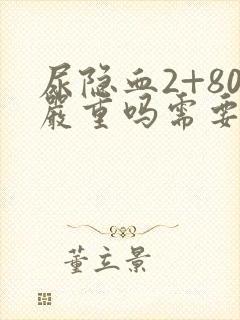 尿隐血2+80
严重吗需要
董立景